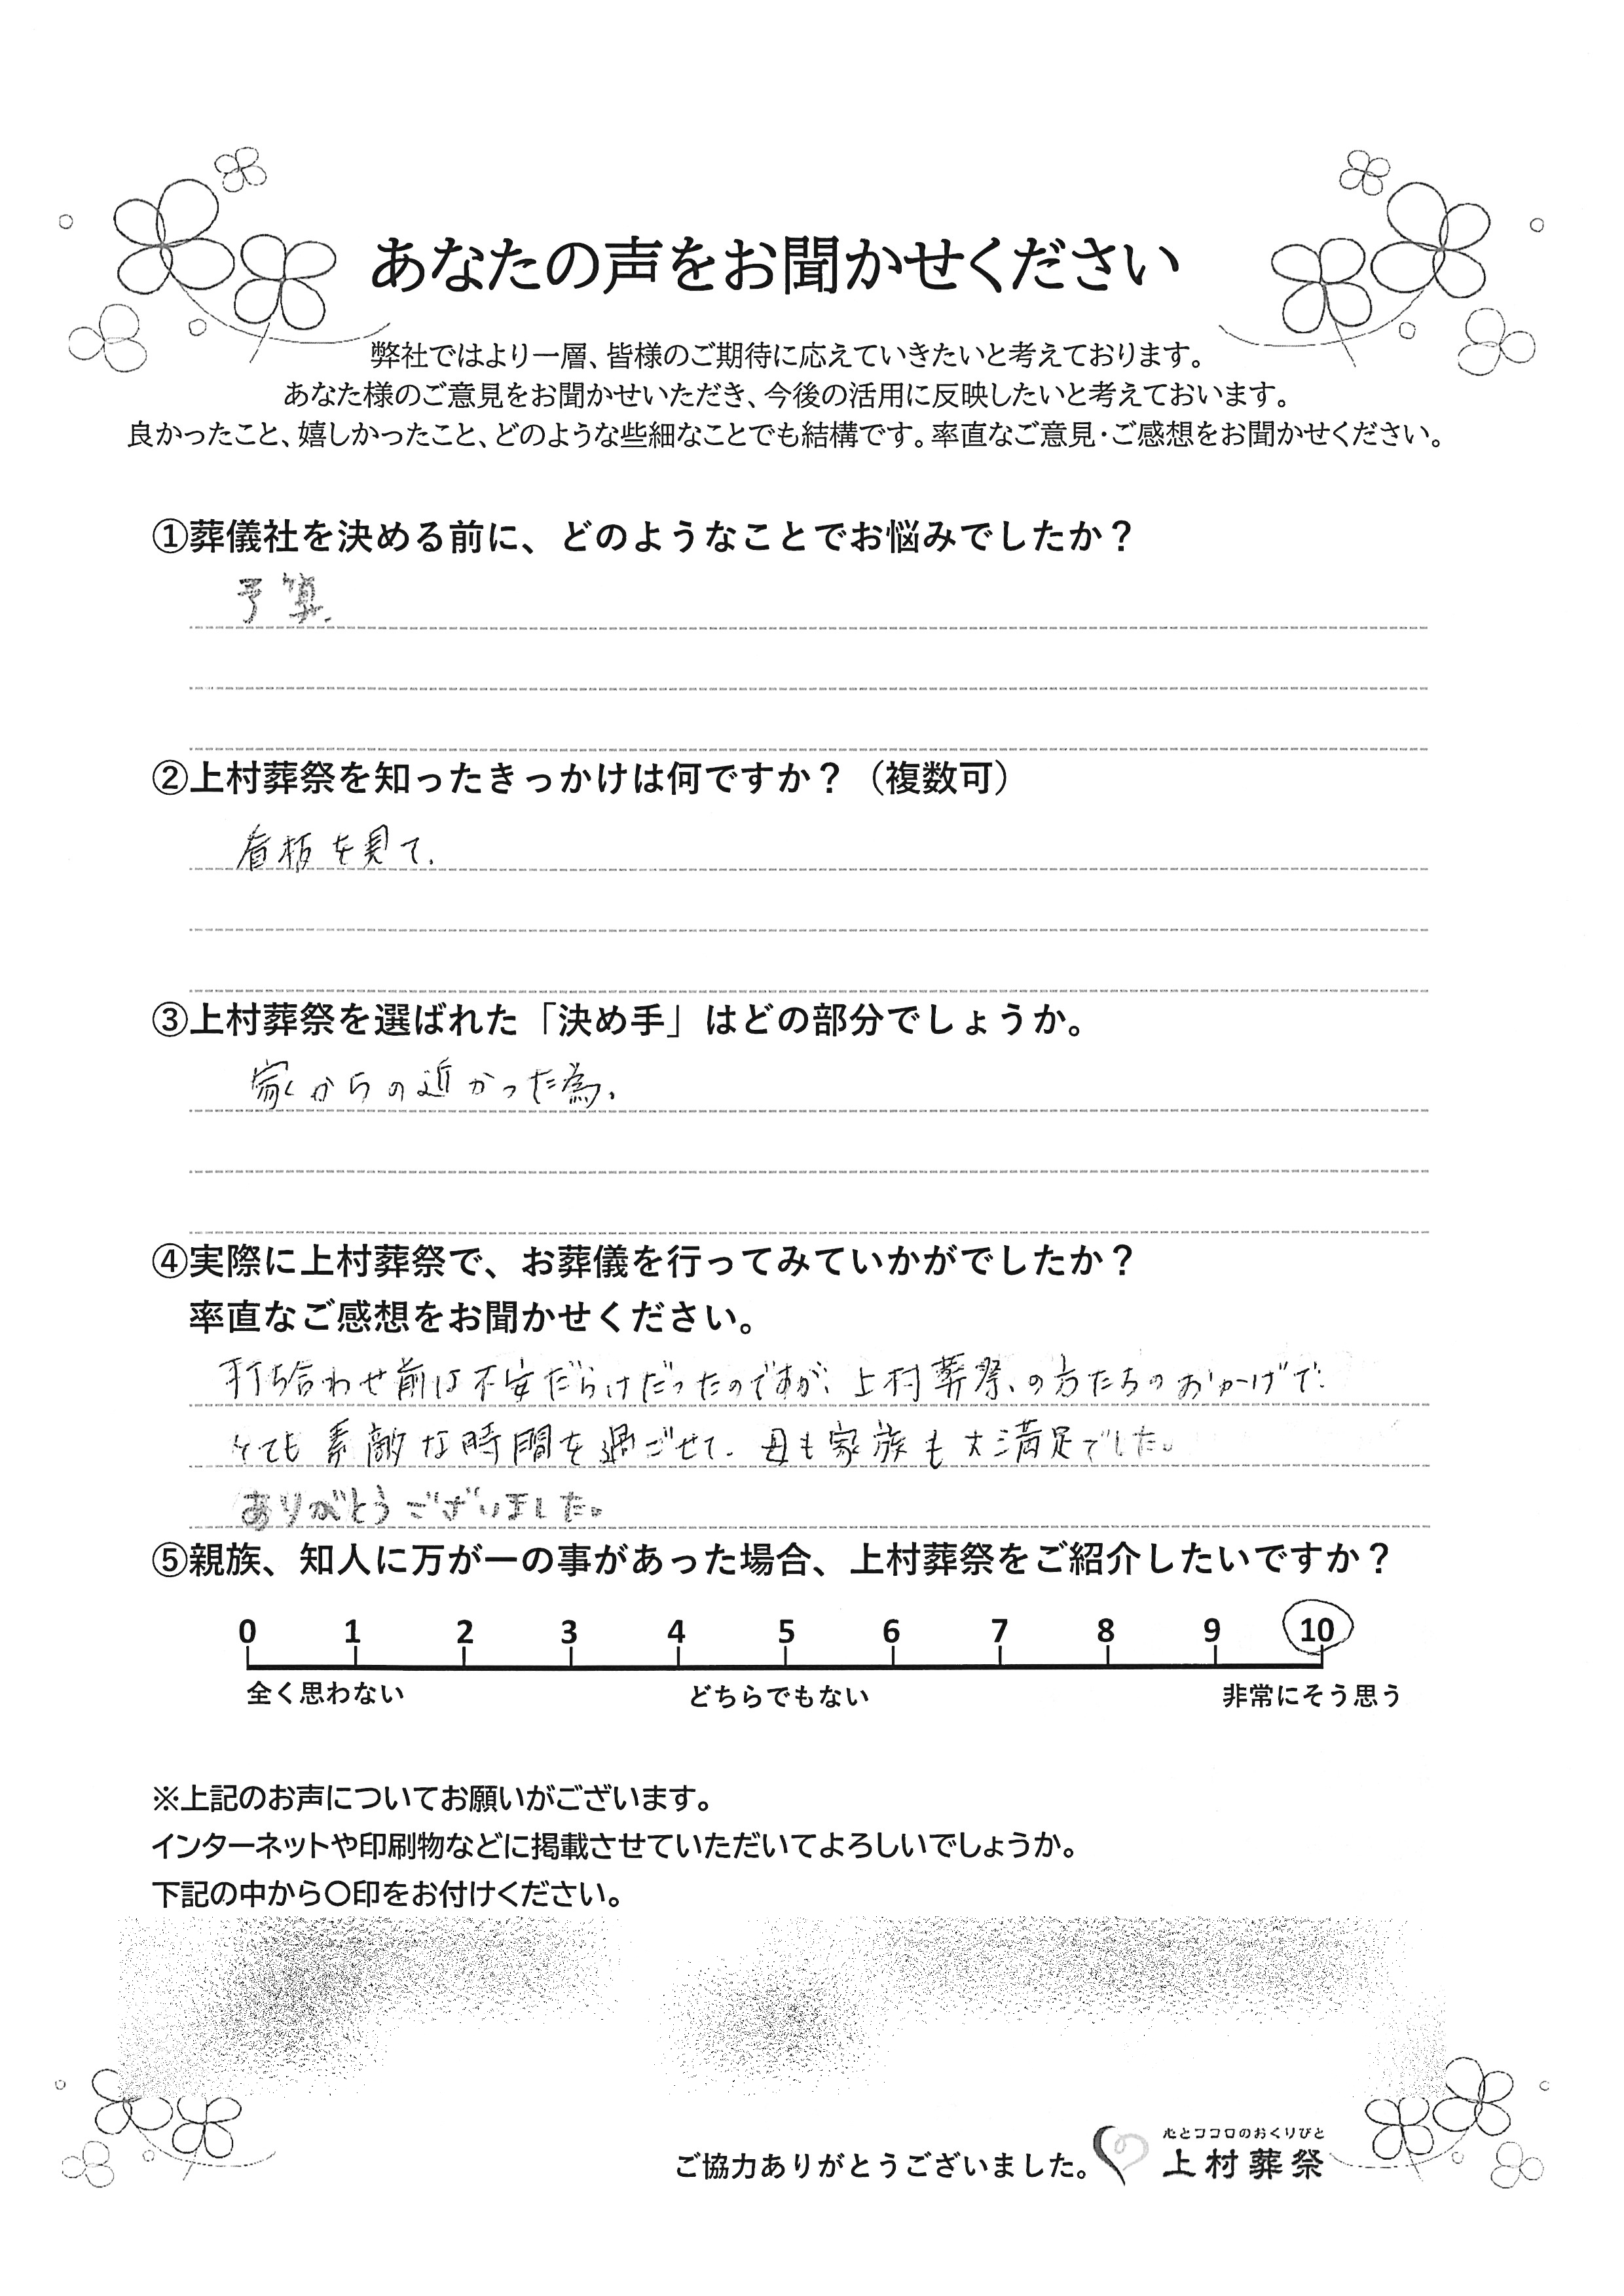 あなたの声をお聞かせください
弊社ではより一層、皆様のご期待に応えていきたいと考えております。
あなた様のご意見をお聞かせいただき、今後の活用に反映したいと考えておいます。
良かったこと、嬉しかったこと、どのような些細なことでも結構です。率直なご意見・ご感想をお聞かせください。
①葬儀社を決める前に、どのようなことでお悩みでしたか？
予算.
②上村葬祭を知ったきっかけは何ですか？（複数可）
看板を見て.
③上村葬祭を選ばれた「決め手」はどの部分でしょうか。
家からの近かった為.
④実際に上村葬祭で、お葬儀を行ってみていかがでしたか？
率直なご感想をお聞かせください。
打ち合わせ前は不安だらけだったのですが、上村葬祭、の方たちのおかげで.
とても素敵な時間を過ごせて、母も家族も大満足でした。
ありがとうございました。
⑤親族、知人に万が一の事があった場合、上村葬祭をご紹介したいですか？
0 1 2 3 4 5 6 7 8 9 10
全く思わない どちらでもない 非常にそう思う
※上記のお声についてお願いがございます。
インターネットや印刷物などに掲載させていただいてよろしいでしょうか。
下記の中から〇印をお付けください。
心とココロのおくりびと
ご協力ありがとうございました。 上村葬祭